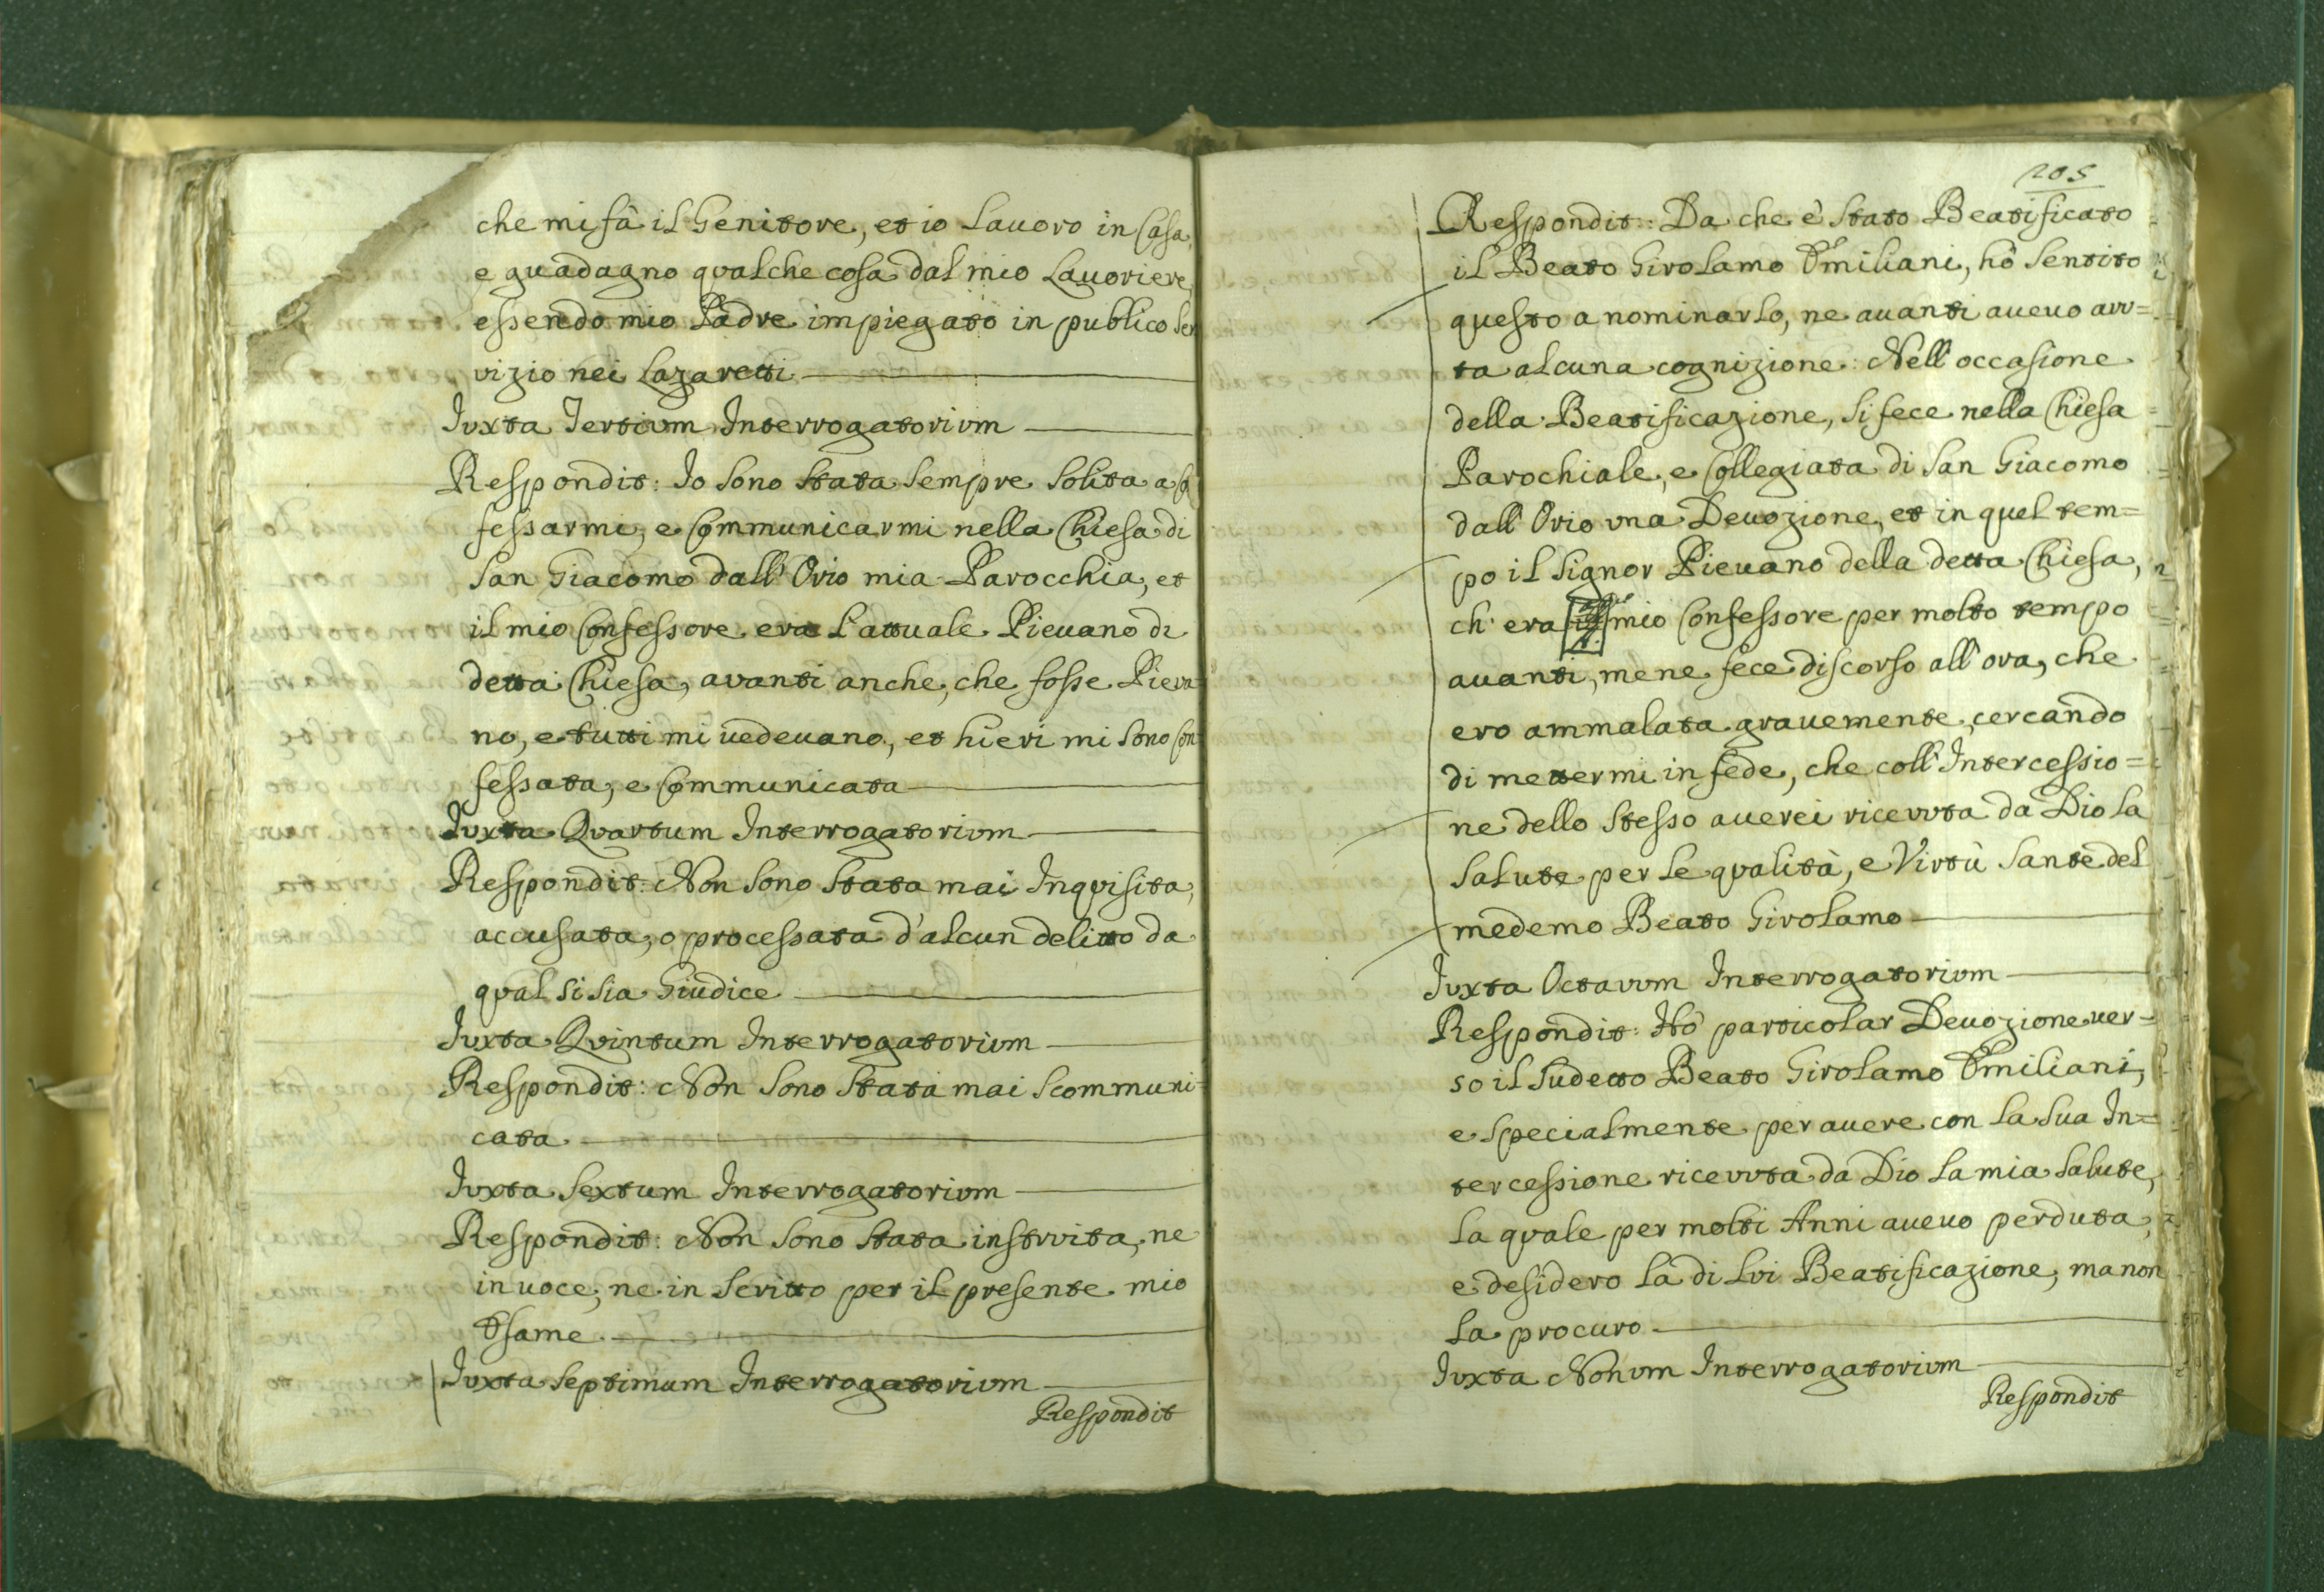 che mi fà il Genitore, et io Lauoro in Casa,
e guadagno qualche cosa dal mio Lauoriere,
essendo mio Padre impiegato in publico Ser
vizio nei Lazaretti
Iuxta Tertium Interrogatorium
Respondit: Io Sono Stata Sempre Solita a Co
fessarmi, e Communicarmi nella Chiesa di
San Giacomo dall' Orio mia Parocchia, et
il mio Confessore era l'attuale Pieuano di
detta Chiesa, avanti anche, che fosse Pieva
no, e tutti mi uedeuano, et hieri mi Sono Con
fessata, e Communicata
Iuxta Quartum Interrogatorium
Respondit: Non Sono Stata mai Inquisita,
accusata, o processata d'alcun delitto da
qual Si Sia Giudice
Iuxta Quintum Interrogatorium
Respondit: Non Sono Stata mai Scommuni=
cata
Iuxta Sextum Interrogatorium
Respondit: Non Sono Stata instruita, ne
in uoce, ne in Scritto per il presente mio
Esame
Iuxta Septimum Interrogatorium
Respondit
205
Respondit: Da che è Stato Beatificato
il Beato Girolamo Emiliani, hò Sentito
questo a nominarlo, ne auanti aueuo avv=
ta alcuna cognizione: Nell' occasione
della Beatificazione, Si fece nella Chiesa
Parochiale, e Collegiata di San Giacomo
dall' Orio una Deuozione, et in quel tem=
po il Signor Pieuano della detta Chiesa,
ch' era mio Confessore per molto tempo
auanti, me ne fece discorso all' ora, che
ero ammalata grauemente, cercando
di mettermi in fede, che coll' Intercessio=
ne dello Stesso auerei riceuuta da Dio la
Salute per le qualità, e Virtù Sante del
medemo Beato Girolamo
Iuxta Octauum Interrogatorium
Respondit: Hò particolar Deuozione uer=
so il Sudetto Beato Girolamo Emiliani,
e Specialmente per auere con la Sua In=
tercessione riceuuta da Dio la mia Salute,
la quale per molti Anni aueuo perduta,
e desidero la di Lui Beatificazione, ma non
la procuro
Iuxta Nonum Interrogatorium
Respondit